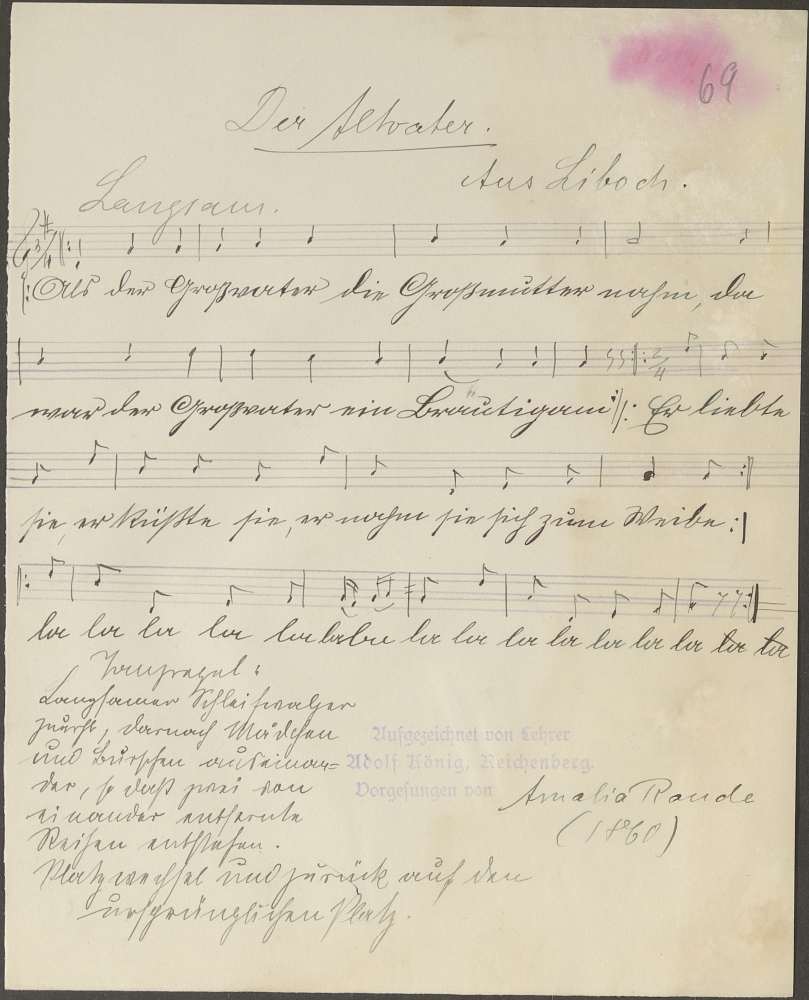 69
Der Altvater.
Aus Liboch.
Langsam.
3/4
|: Als der Großvater die Großmutter nahm, da
war der Großvater ein Bräutigam :|: Er liebte
2/4
sie, er küßte sie, er nahm sie sich zum Weibe :|
la la la la lalala la la la la la la la la la
Tanzregel:
Langsamer Schleifwalzer
zuerst, darnach Mädchen
und Burschen auseinan=
der, so daß zwei von
einander entfernte
Reihen entstehen.
Platzwechsel und zurück auf den
ursprünglichen Platz.
Aufgezeichnet von Lehrer
Adolf König, Reichenberg.
Vorgesungen von Amalia Rande
(1860)